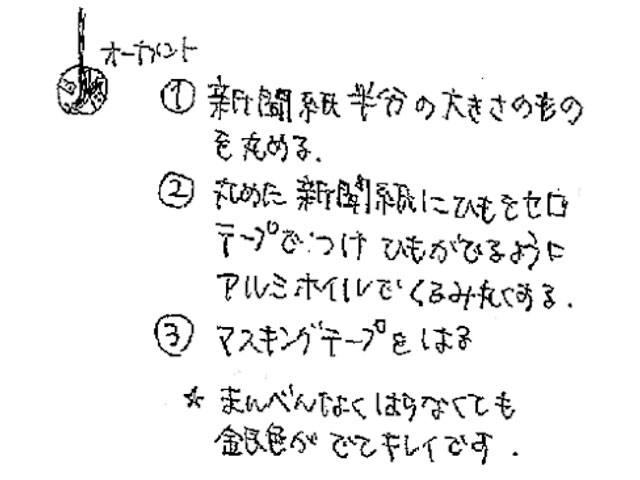 オーナメント
① 新聞紙半分の大きさのもの
を丸める.
② 丸めた新聞紙にひもをセロ
テープでつけ ひもがでるように
アルミホイルでくるみ丸くする.
③ マスキングテープをはる
☆ まんべんなくはらなくても
銀色がでてキレイです.